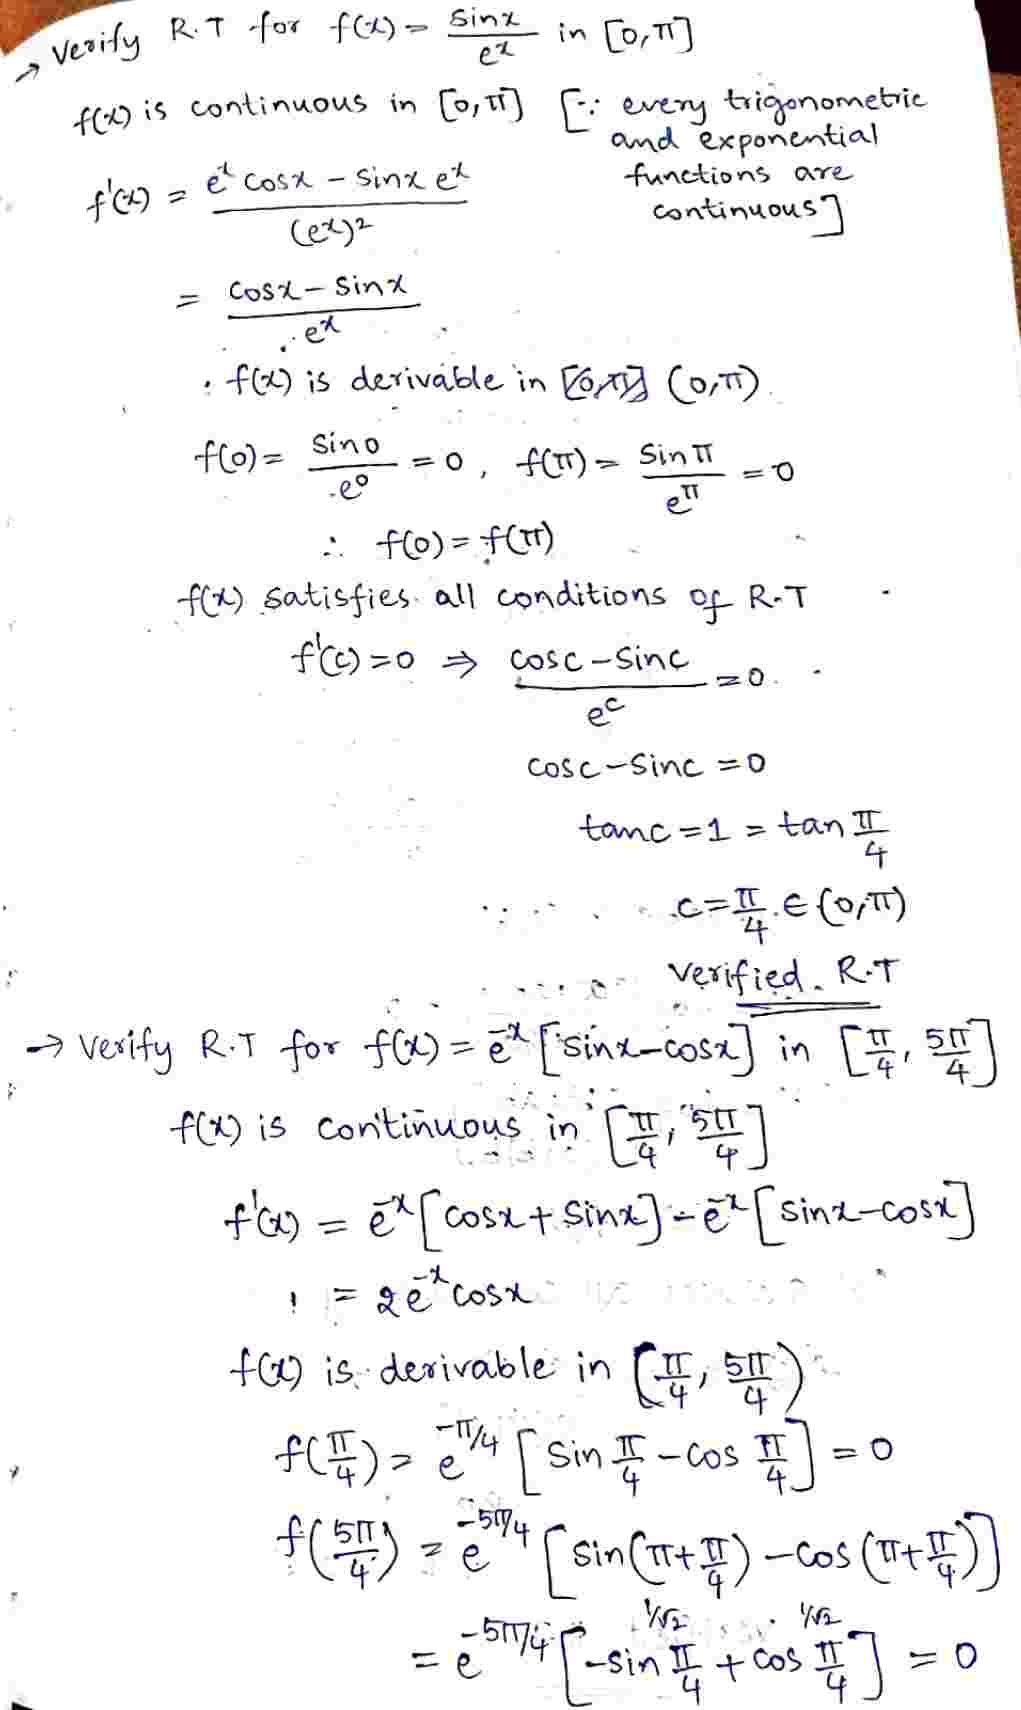 → Verify R.T for f(x) = sinx/e^x in [0,π]
f(x) is continuous in [0,π] [∵ every trigonometric
and exponential
functions are
continuous]
f'(x) = (e^x cosx - sinx e^x)/(e^x)^2
= (cosx - sinx)/e^x
∴ f(x) is derivable in (0,π)
f(0) = sin0/e^0 = 0, f(π) = sinπ/e^π = 0
∴ f(0) = f(π)
f(x) satisfies all conditions of R.T
f'(c) = 0 ⇒ (cosc - sinc)/e^c = 0
cosc - sinc = 0
tanc = 1 = tan π/4
c = π/4 ∈ (0,π)
Verified R.T
→ Verify R.T for f(x) = e^-x [sinx - cosx] in [π/4, 5π/4]
f(x) is continuous in [π/4, 5π/4]
f'(x) = e^-x [cosx + sinx] - e^-x [sinx - cosx]
= 2e^-x cosx
f(x) is derivable in (π/4, 5π/4)
f(π/4) = e^-π/4 [sin π/4 - cos π/4] = 0
f(5π/4) = e^-5π/4 [sin(π + π/4) - cos(π + π/4)]
1/√2 1/√2
= e^-5π/4 [-sin π/4 + cos π/4] = 0